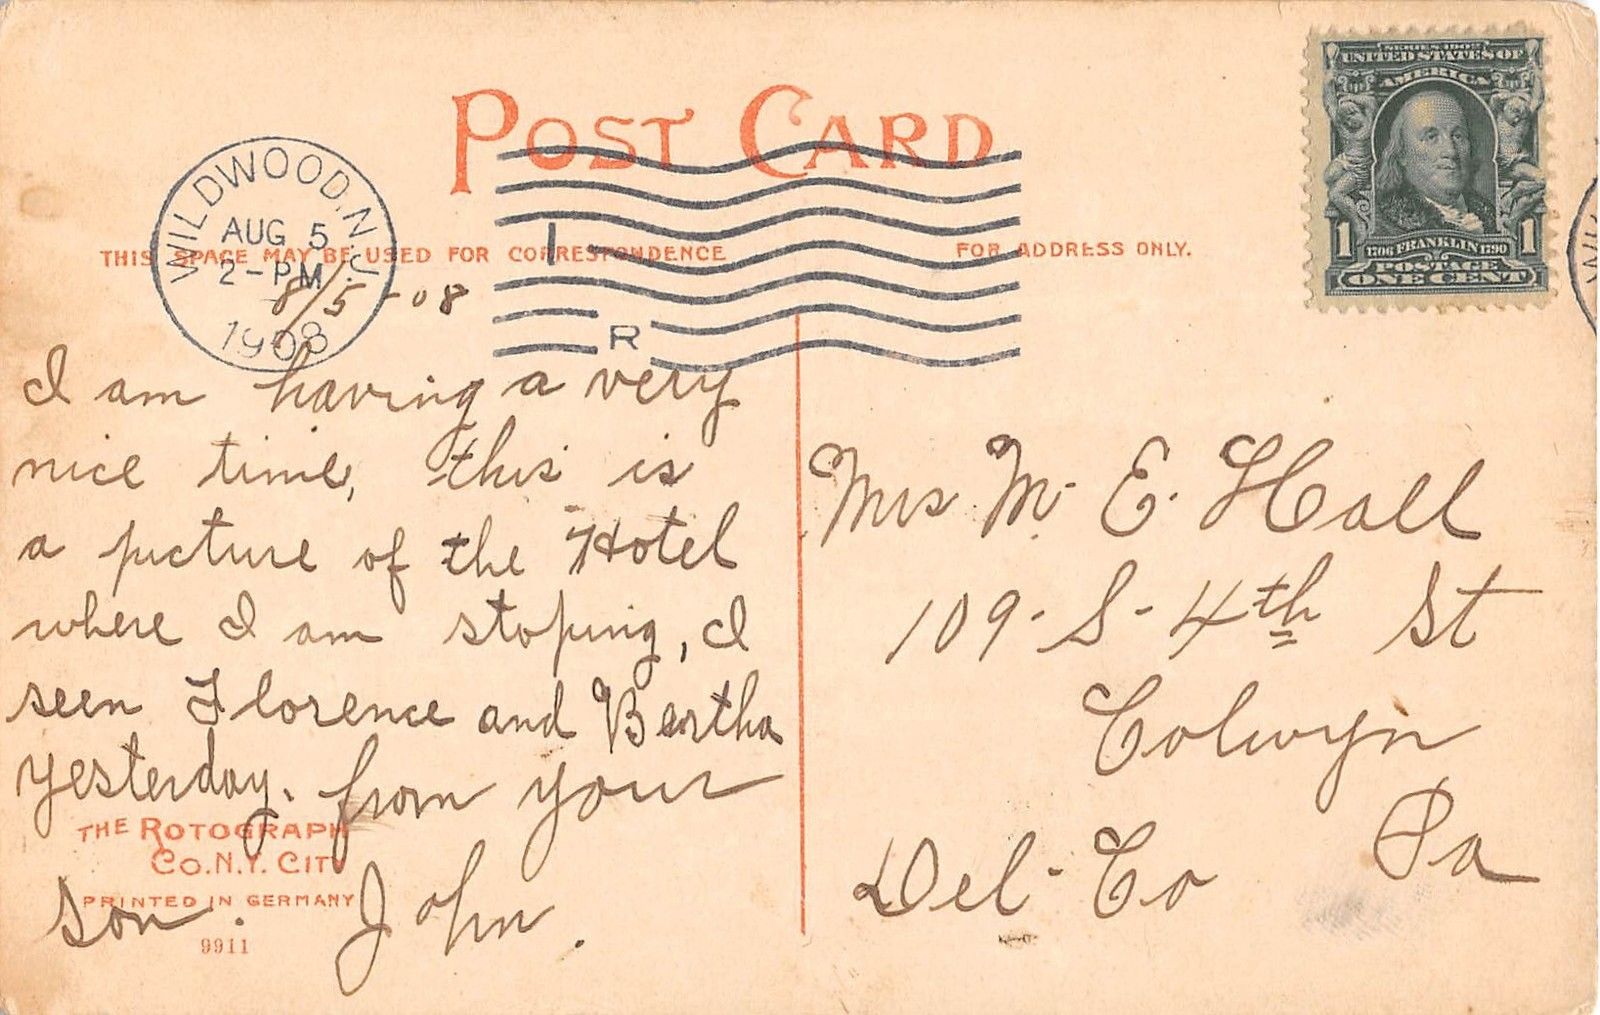 POST CARD
WILDWOOD, N.J.
AUG 5
2-PM
1908
THIS SPACE MAY BE USED FOR CORRESPONDENCE
FOR ADDRESS ONLY.
I
R
SERIES 1902
UNITED STATES OF
AMERICA
1 1706 FRANKLIN 1790 1
POSTAGE
ONE CENT
8/5-08
I am having a very
nice time, this is
a picture of the Hotel
where I am stoping, I
seen Florence and Bertha
yesterday. from your
son. John.
Mrs M. E. Hall
109-S-4th St
Colwyn
Pa
Del-Co
THE ROTOGRAPH
CO. N.Y. CITY
PRINTED IN GERMANY
9911